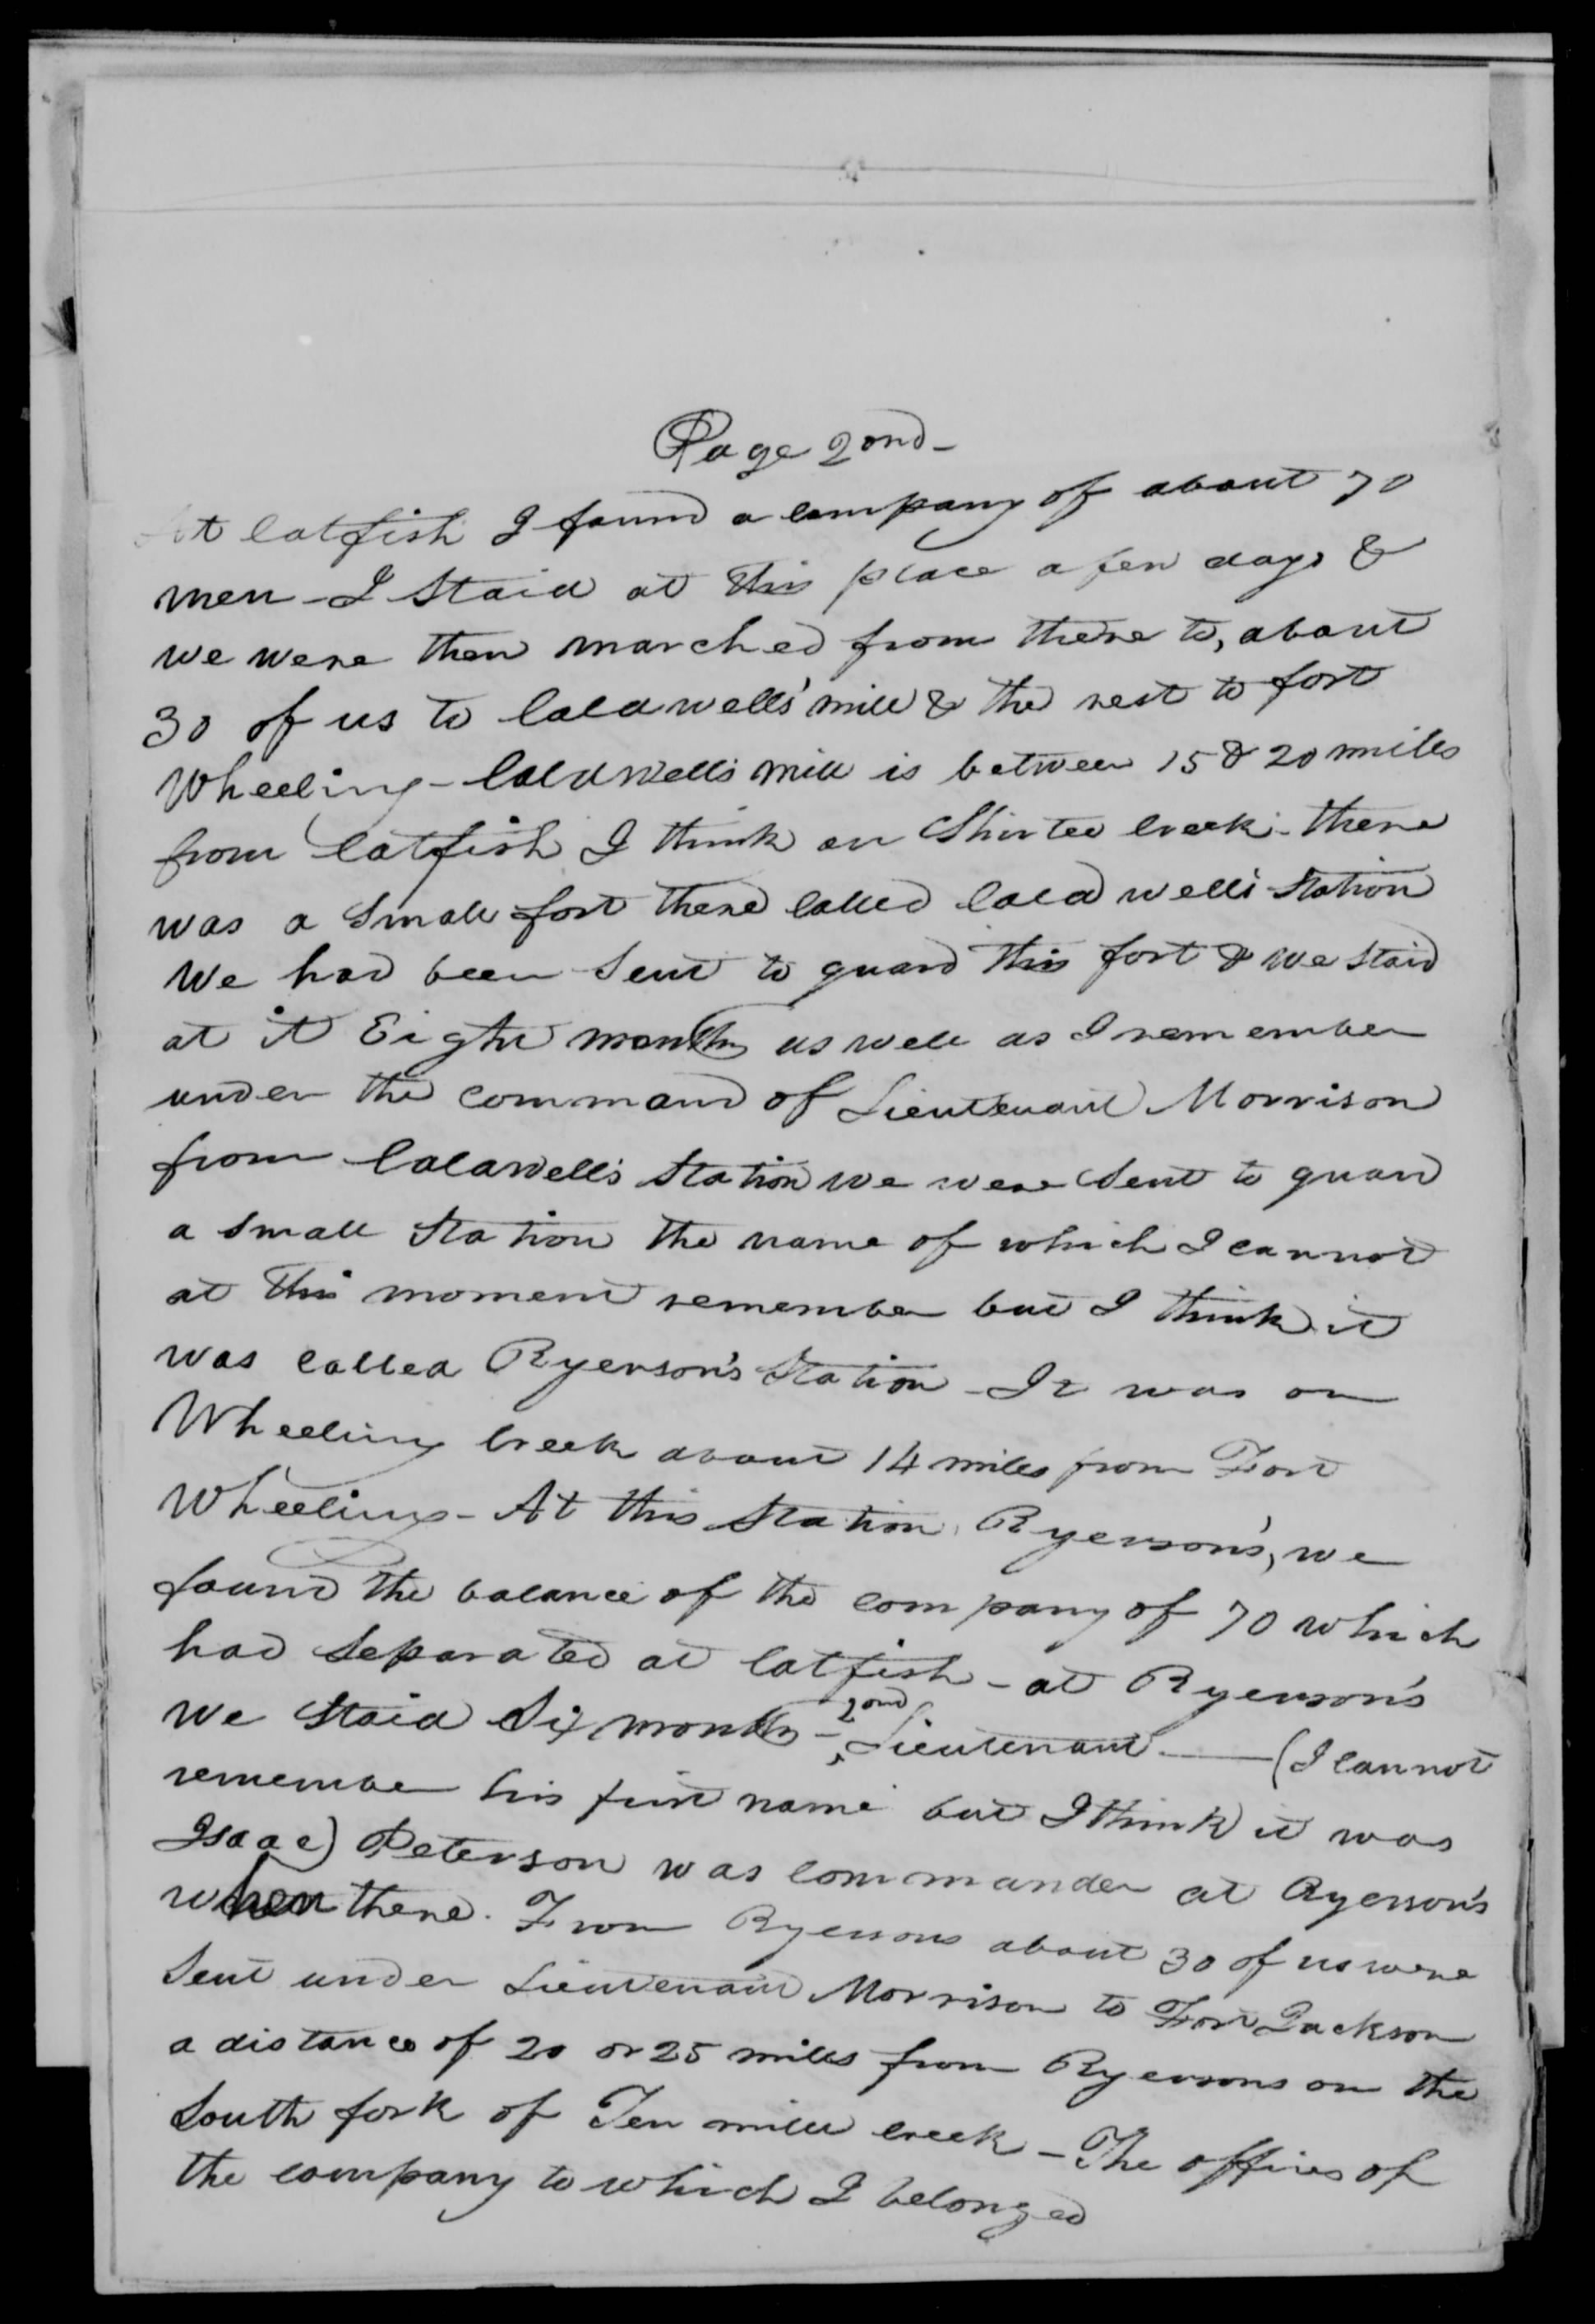 Page 2ond -
At Catfish I found a company of about 70
men - I Staid at this place a few days &
we were then marched from there to, about
30 of us to Caldwells' mill & the rest to fort
Wheeling - Caldwells mill is between 15 & 20 miles
from Catfish I think on Shirtee Creek - there
was a Small fort there Called Caldwell's Station
We had been Sent to guard this fort & we staid
at it Eight months as well as I remember
under the command of Lieutenant Morrison
from Caldwell's Station we were Sent to guard
a small Station the name of which I cannot
at this moment remember but I think it
was called Ryerson's Station - It was on
Wheeling Creek about 14 miles from Fort
Wheeling - At this Station, Ryerson's, we
found the balance of the company of 70 which
had Separated at Catfish - at Ryerson's
we Staid Six months - 2ond Lieutenant —— (I Cannot
remember his first name but I think it was
Isaac) Peterson was Commander at Ryerson's
when there. From Ryersons about 30 of us were
Sent under Lieutenant Morrison to Fort Jackson
a distance of 20 or 25 miles from Ryersons on the
South fork of Ten mile Creek - The offires of
the company to which I belonged